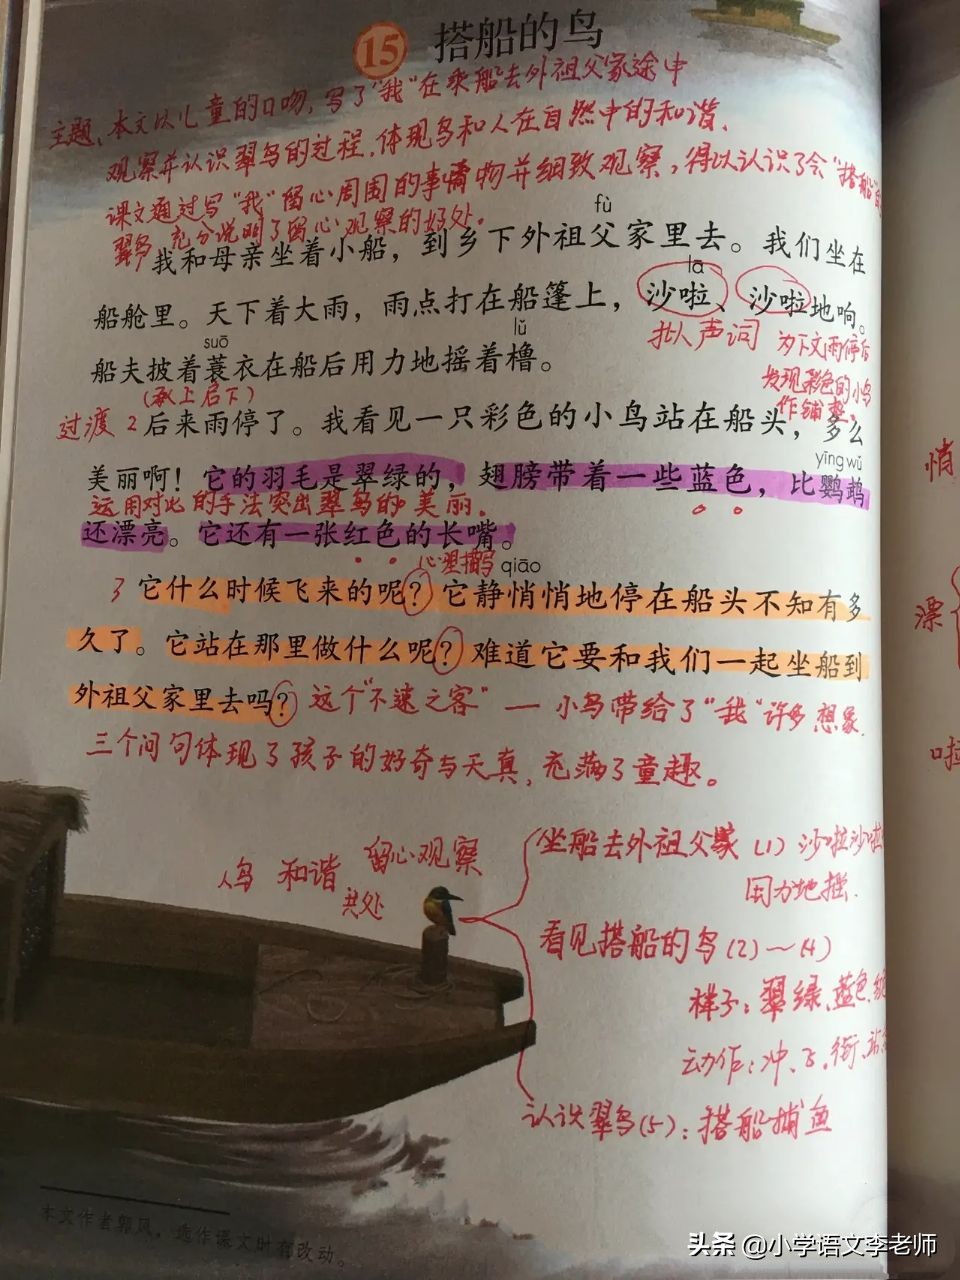 15 搭船的鸟
主题、本文以儿童的口吻,写了“我”在乘船去外祖父家途中
观察并认识翠鸟的过程,体现鸟和人在自然中的和谐、
课文通过写“我”留心周围的事情物并细致观察,得以认识了会“搭船”的
翠鸟 充分说明了留心观察的好处。
fù
我和母亲坐着小船，到乡下外祖父家里去。我们坐在
lā
船舱里。天下着大雨，雨点打在船篷上，沙啦、沙啦地响。
拟人声词 为下文雨停后
suō lǔ
船夫披着蓑衣在船后用力地摇着橹。
发现彩色的小鸟
作铺垫。
(承上启下)
过渡 2 后来雨停了。我看见一只彩色的小鸟站在船头，多么
yīng wǔ
美丽啊！它的羽毛是翠绿的，翅膀带着一些蓝色，比鹦鹉
运用对比的手法突出翠鸟的美丽。
还漂亮。它还有一张红色的长嘴。
心理描写 qiāo
3 它什么时候飞来的呢？它静悄悄地停在船头不知有多
久了。它站在那里做什么呢？难道它要和我们一起坐船到
外祖父家里去吗？ 这个“不速之客” — 小鸟带给了“我”许多想象.
三个问句体现了孩子的好奇与天真,充满了童趣。
坐船去外祖父家 (1) 沙啦沙啦
用力地摇.
人鸟 和谐 留心观察
共处
看见搭船的鸟(2)～(4)
样子: 翠绿、蓝色、
动作: 冲、飞、衔、站
认识翠鸟(5): 搭船捕鱼
本文作者郭风，选作课文时有改动。
悄
漂
啦
头条 @小学语文李老师